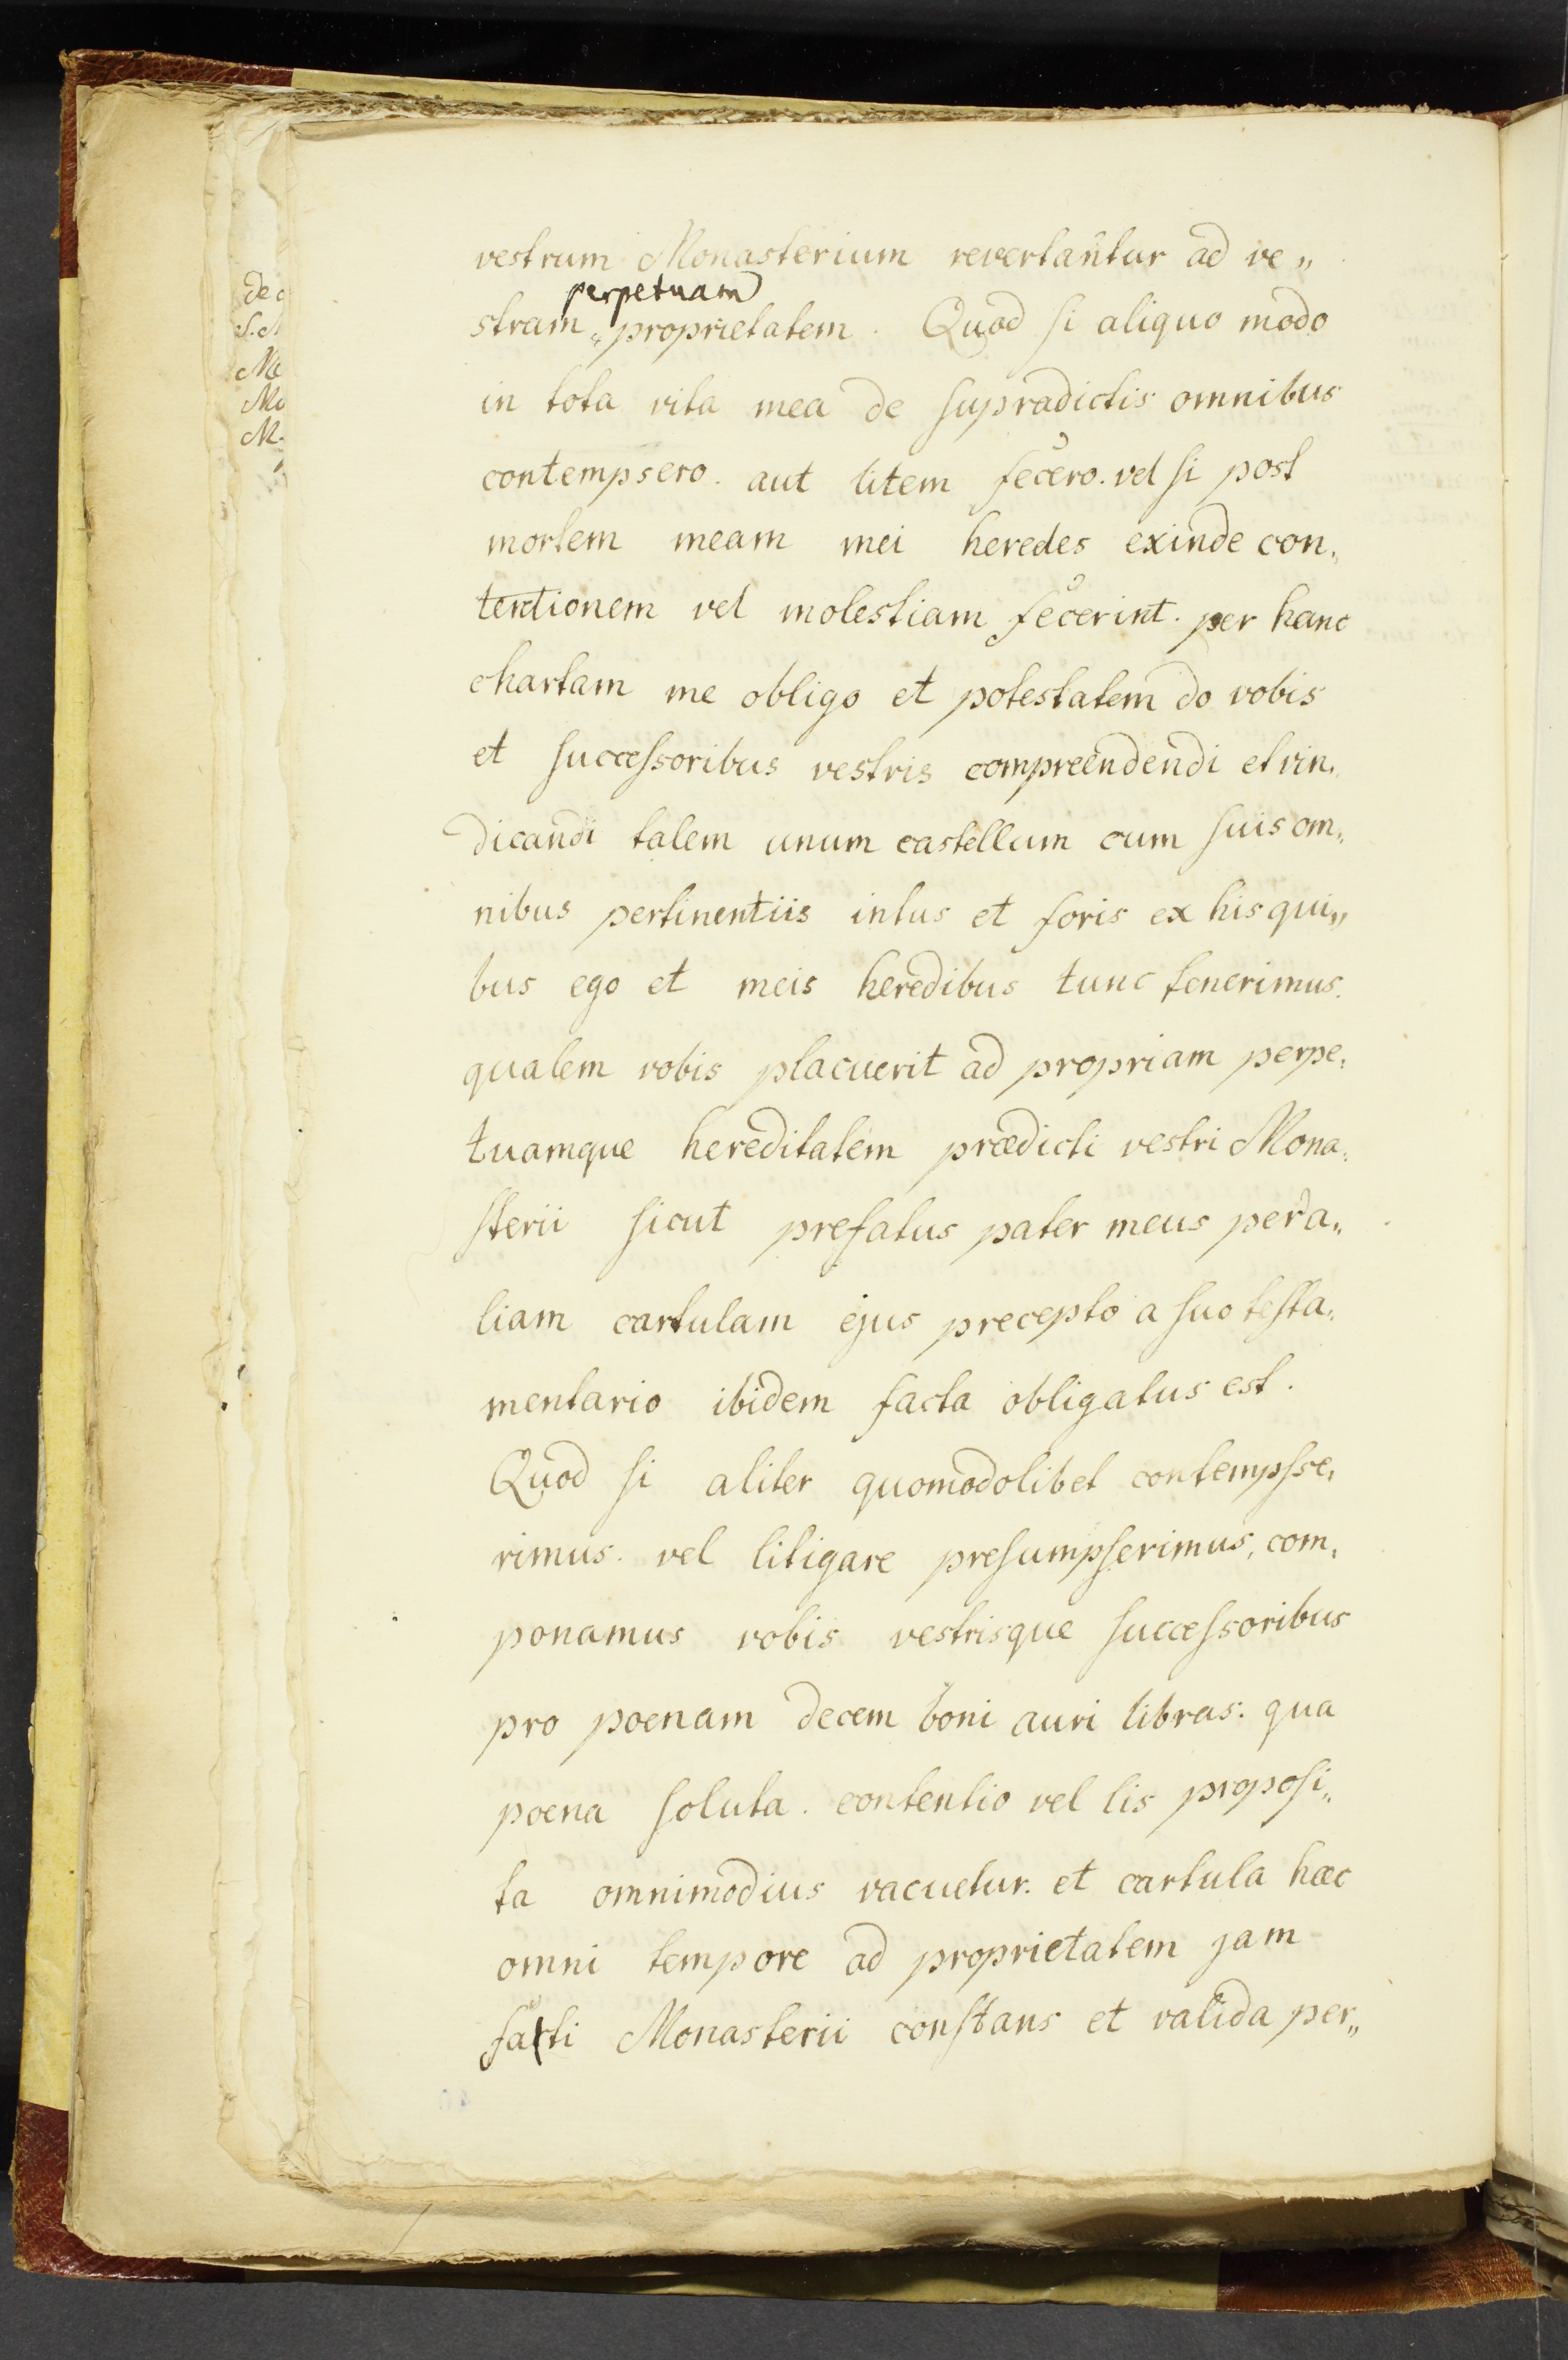 vestrum Monasterium revertantur ad ve„
perpetuam
stram „ proprietatem. Quod si aliquo modo
in tota vita mea de supradictis omnibus
contempsero. aut litem fecero. vel si post
mortem meam mei heredes exinde con„
tentionem vel molestiam fecerint. per hanc
chartam me obligo et potestatem do vobis
et successoribus vestris compreendendi et vin„
dicandi talem unum castellum cum suis om„
nibus pertinentiis intus et foris ex his qui„
bus ego et meis heredibus tunc tenerimus.
qualem vobis placuerit ad propriam perpe„
tuamque hereditatem prædicti vestri Mona„
sterii sicut prefatus pater meus per a„
liam cartulam ejus precepto a suo testa„
mentario ibidem facta obligatus est.
Quod si aliter quomodolibet contempse„
rimus. vel litigare presumpserimus, com„
ponamus vobis vestrisque successoribus
pro poenam decem boni auri libras: qua
poena soluta. contentio vel lis proposi„
ta omnimodius vacuetur. et cartula hæc
omni tempore ad proprietatem jam
fati Monasterii constans et valida per„
de
S.
Me
Mo
M.